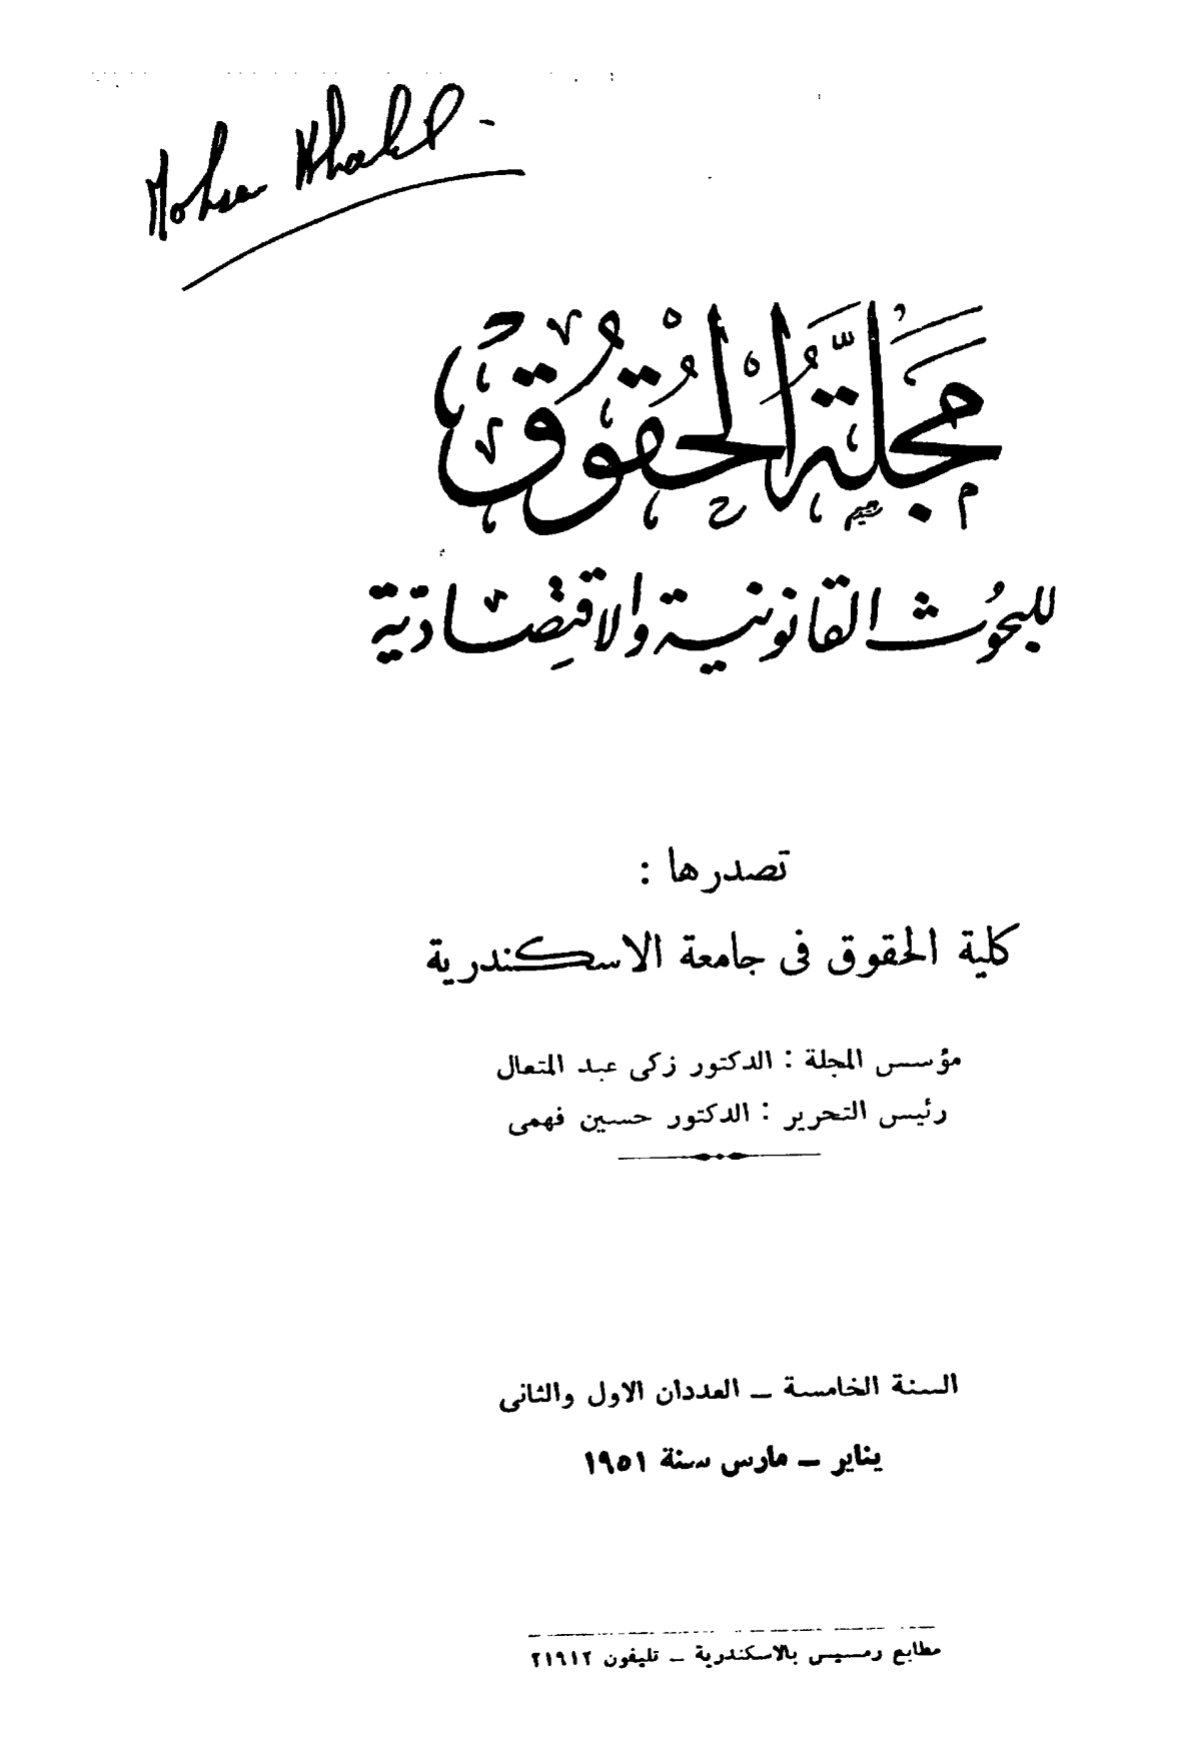 Mohsen Khalil -
مَجَلَّةُ الْحُقُوقِ
للبحُوث القانونية والاقتِصادية
تصدرها :
كلية الحقوق فى جامعة الاسكندرية
مؤسس المجلة : الدكتور زكى عبد المتعال
رئيس التحرير : الدكتور حسين فهمى
السنة الخامسة – العددان الاول والثانى
يناير – مارس سنة ١٩٥١
مطابع رمسيس بالاسكندرية – تليفون ٢١٩١٢